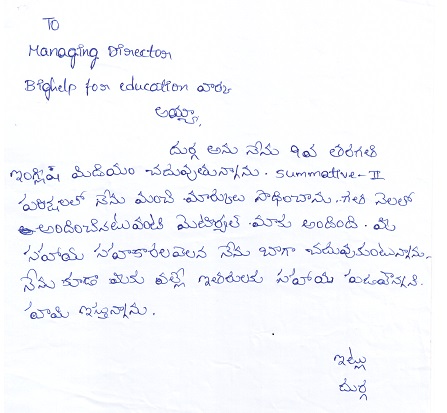 To
Managing Director
Bighelp for education వారు
అయ్యా,
దుర్గ అను నేను 9వ తరగతి
ఇంగ్లిష్ మీడియం చదువుతున్నాను. Summative-II
పరీక్షలలో నేను మంచి మార్కులు సాధించాను. గత నెలలో
అందించినటువంటి మెటీరియల్ మాకు అందింది. మీ
సహాయ సహకారాలవలన నేను బాగా చదువుకుంటున్నాను.
నేను కూడా మీకు వల్లే ఇతరులకు సహాయ పడతానని
హామి ఇస్తున్నాను.
ఇట్లు
దుర్గ